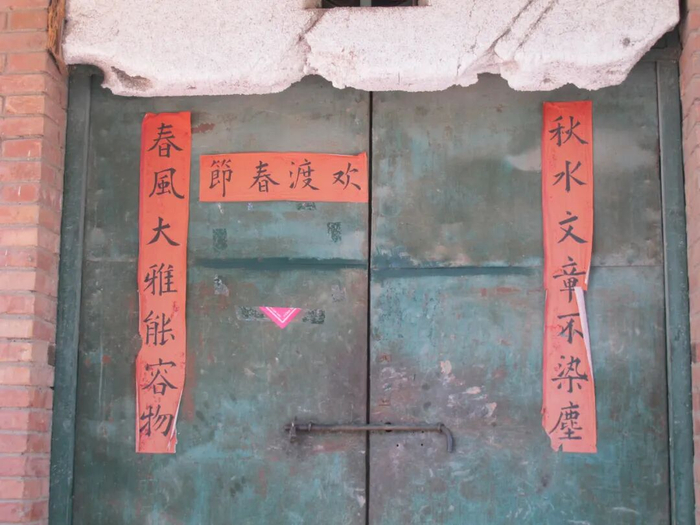 春風大雅能容物
欢渡春節
秋水文章不染塵